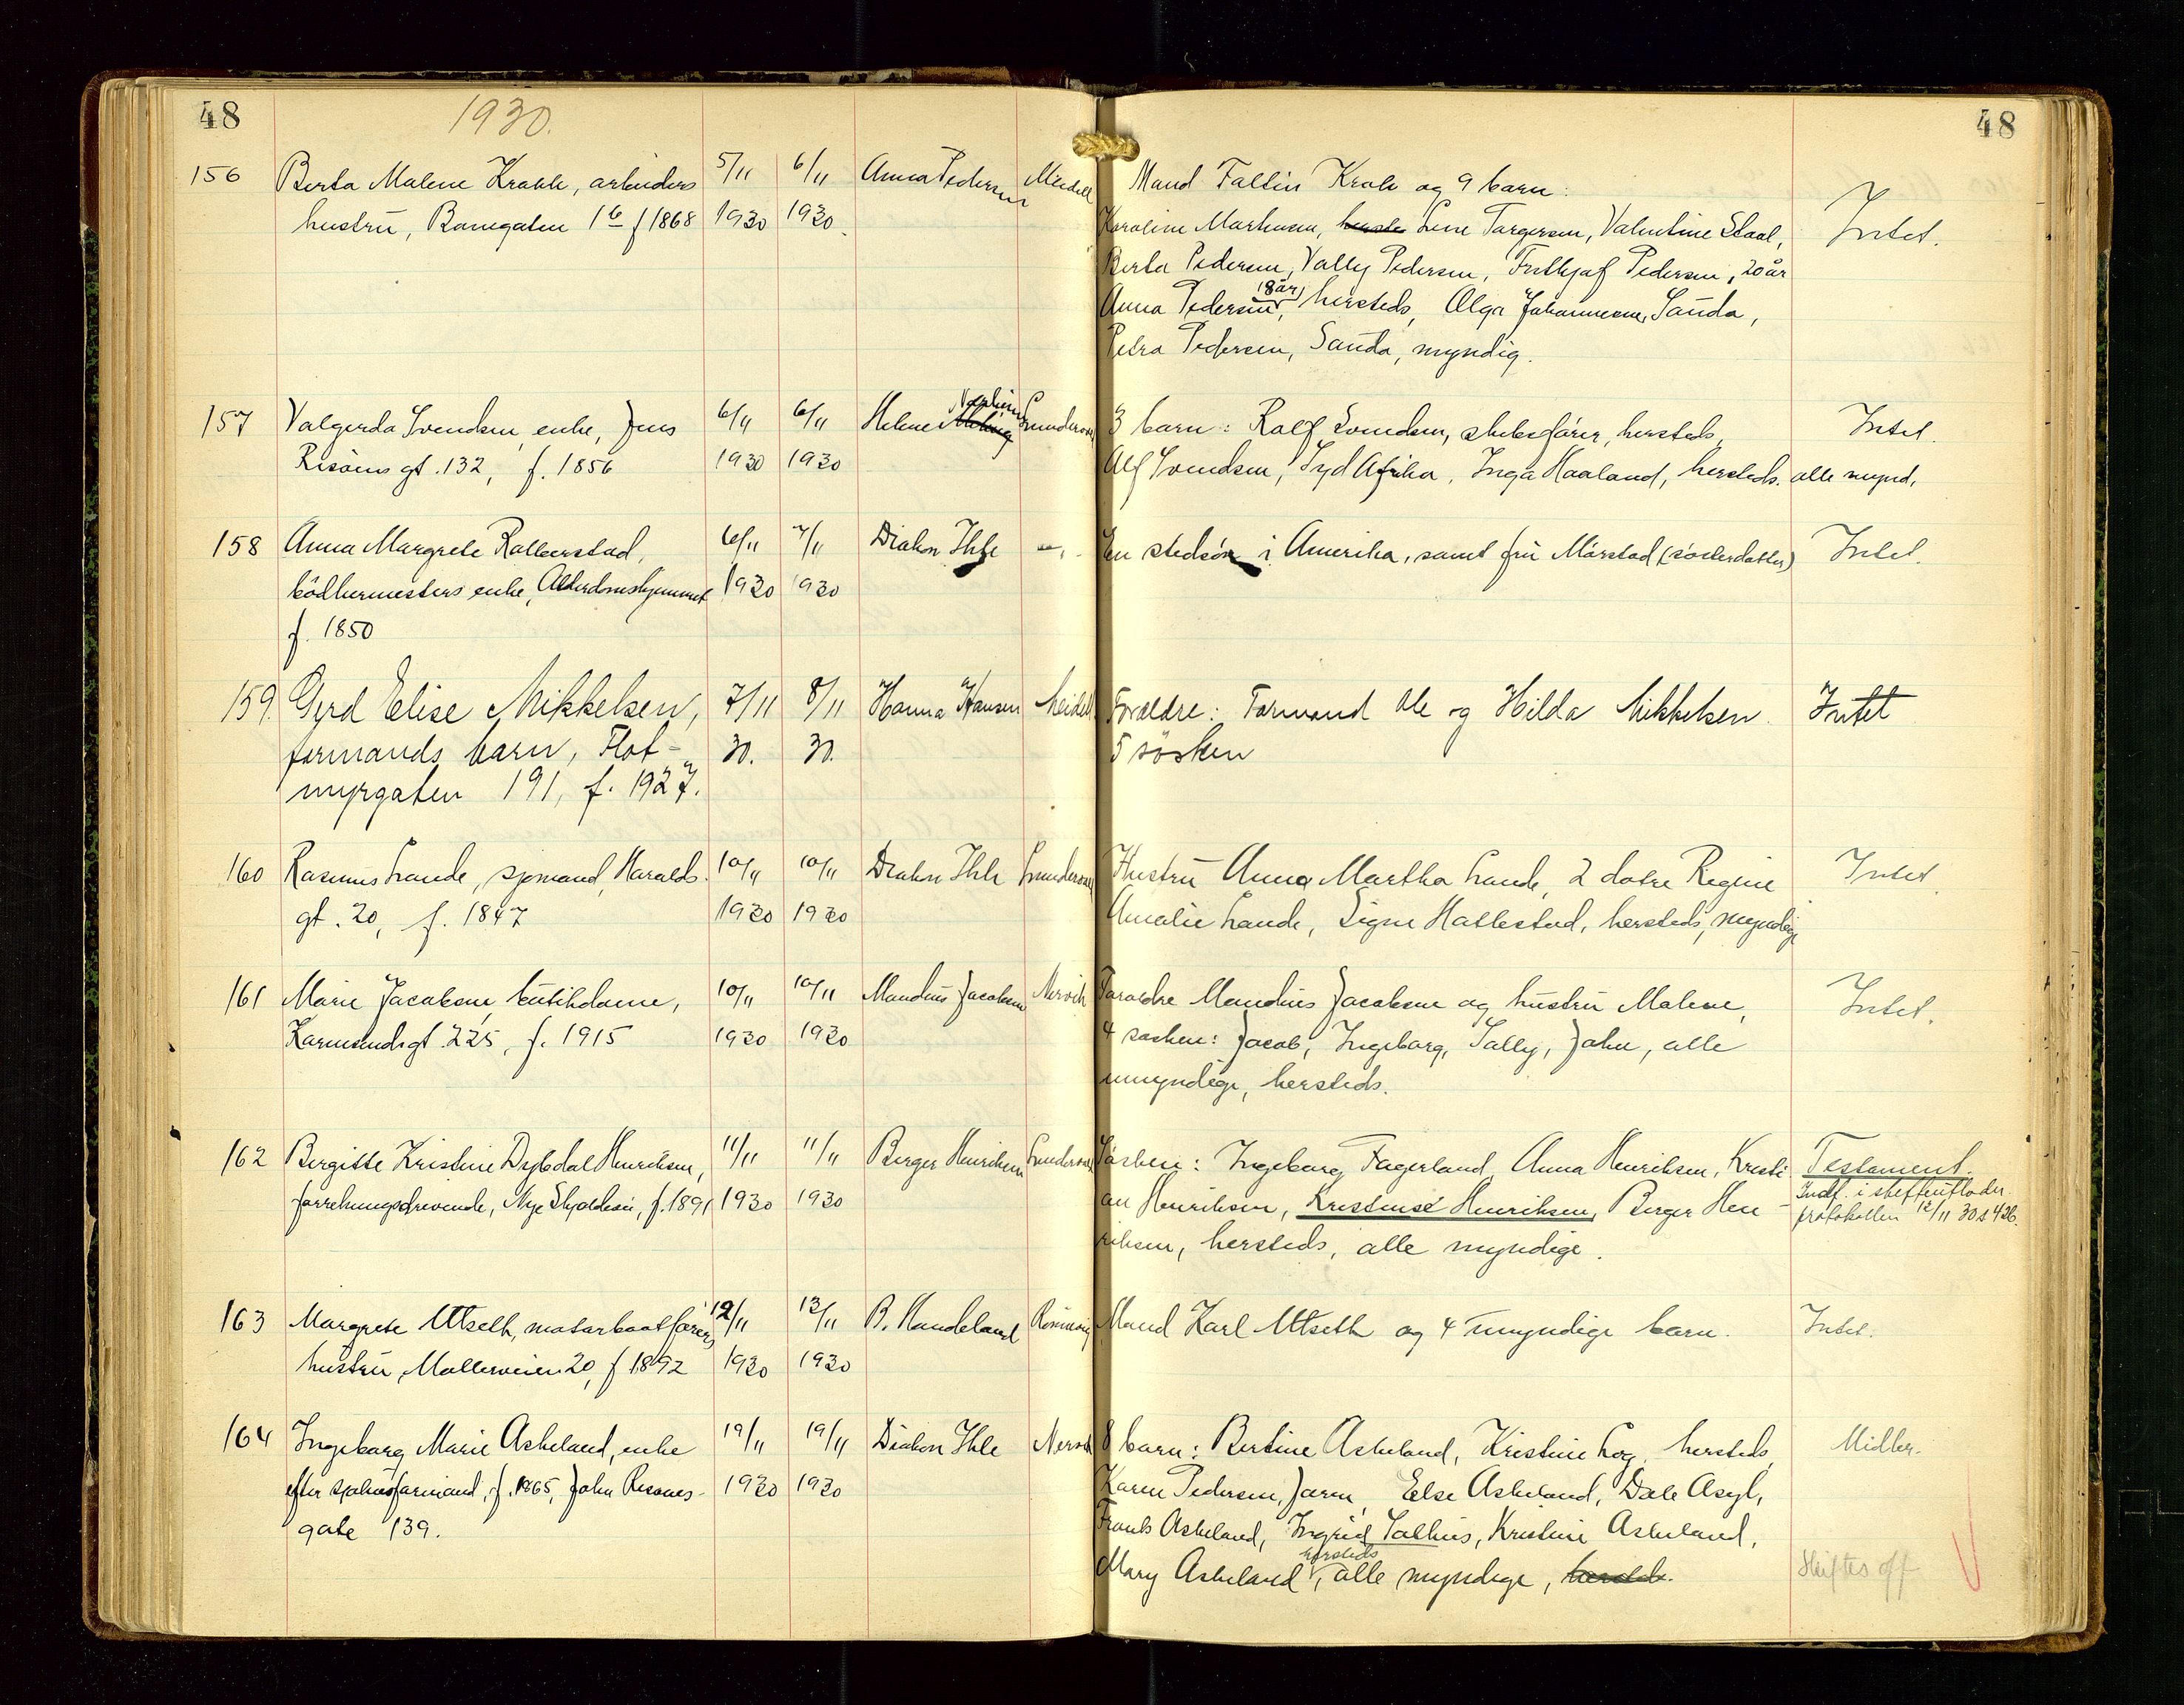 48
1930.
48
156 Berta Malene Krakk, arbeiders 5/11 6/11 Anna Pedersen Meidell Mand Faltin Krak og 9 barn:
hustrü, Banegaten 16 f 1868 1930 1930. Karoline Markusen, Lene Torgersen, Valentine Staal, Intet.
Berta Pedersen, Vally Pedersen, Frithjof Pedersen, 20 år
Anna Pedersen, 18 år, hersteds, Olga Johannesen, Sauda,
Petra Pedersen, Sauda, myndig.
157 Valgerda Svendsen, enke, Jens 6/11 6/11 Helene Gundersen 3 barn: Ralf Svendsen, skibsfører, hersteds, Intet.
Risöens gt. 132, f. 1856 1930 1930 Alf Svendsen, Syd Afrika, Inga Haaland, hersteds. alle mynd.
158 Anna Margrete Rolleivstad, 6/11 7/11 Diakon Ihle — En stedsön i Amerika, samt frü Mårstad (sösterdatter) Intet.
bödkermesters enke, Alderdomshjemmet 1930 1930
f. 1850
159. Gyrd Elise Mikkelsen, 7/11 8/11 Hanna Hansen Meidell Foreldre: Formand Ole og Hilda Mikkelsen. Intet
formands barn, Flot- 30. 30. 5 søsken
myrgaten 191, f. 1927.
160 Rasmus Lande, sjømand, Haralds- 10/11 10/11 Diakon Ihle Gundersen Hustrü Anna Martha Lande, 2 døtre Regine Intet.
gt. 20, f. 1847 1930 1930 Amalie Lande, Signe Hallestad, hersteds, myndige
161 Marie Jacobsen, bütikdame, 10/11 10/11 Mandius Jacobsen Nervik Foreldre Mandius Jacobsen og hustrü Malene, Intet.
Karmsundsgt. 225, f. 1915 1930 1930 4 søsken: Jacob, Ingeborg, Sally, John, alle
umyndige, hersteds.
162 Birgitte Kristine Dybdal Henriksen, 11/11 11/11 Berger Henriksen Gundersen Søsken: Ingeborg Fagerland, Anna Henriksen, Kristi- Testament.
forretningsdrivende, Nye Skjoldevei, f. 1891 1930 1930 an Henriksen, Kristense Henriksen, Berger Hen- Indf. i skifteutlodn.
protokollen 12/11 30 s 426.
riksen, hersteds, alle myndige.
163 Margrete Utseth, motorbaatførers 12/11 13/11 B. Haudeland Mand Karl Utseth og 4 umyndige barn. Intet.
hustrü, Møllerveien 20, f 1892 1930 1930
164 Ingeborg Marie Askeland, enke 19/11 19/11 Diakon Ihle Nervik 8 barn: Bertine Askeland, Kristine Log, hersteds, Midler.
efter sjøhusformand, f. 1865, John Risøens- 1930 1930 Karen Pedersen, Jæren, Else Askeland, Dale Asyl,
gate 139. Frants Askeland, Ingrid Salhus, Kristine Askeland,
Mary Askeland hersteds, alle myndige, hersteds. Skiftes off